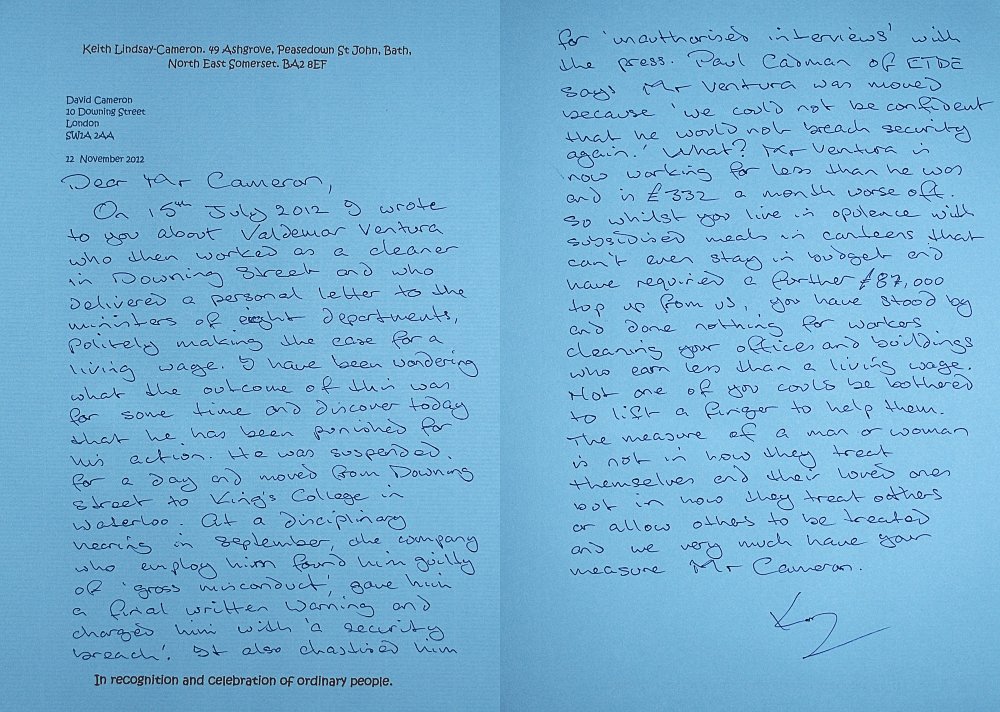 Keith Lindsay-Cameron. 49 Ashgrove, Peasedown St John, Bath,
North East Somerset. BA2 8EF
David Cameron
10 Downing Street
London
SW1A 2AA
12 November 2012
Dear Mr Cameron,
On 15th July 2012 I wrote
to you about Valdemar Ventura
who then worked as a cleaner
in Downing Street and who
delivered a personal letter to the
ministers of eight departments,
politely making the case for a
living wage. I have been wondering
what the outcome of this was
for some time and discover today
that he has been punished for
his action. He was suspended
for a day and moved from Downing
Street to King's College in
Waterloo. At a disciplinary
hearing in September, the company
who employ him found him guilty
of 'gross misconduct', gave him
a final written warning and
charged him with 'a security
breach'. It also chastised him
In recognition and celebration of ordinary people.
for 'unauthorised interviews' with
the press. Paul Cadman of ETDE
says Mr Ventura was moved
because 'we could not be confident
that he would not breach security
again.' What? Mr Ventura is
now working for less than he was
and is £332 a month worse off.
So whilst you live in opulence with
subsidised meals in canteens that
can't even stay in budget and
have required a further £87,000
top up from us, you have stood by
and done nothing for workers
cleaning your offices and buildings
who earn less than a living wage.
Not one of you could be bothered
to lift a finger to help them.
The measure of a man or woman
is not in how they treat
themselves and their loved ones
but in how they treat others
or allow others to be treated
and we very much have your
measure Mr Cameron.